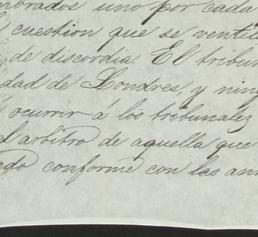 mbrados uno por cada
cuestion que se ventil
de discordia. El tribun
dad de Londres, y ning
ocurrir á los tribunales
l arbitro de aquella que
ado conforme con las an